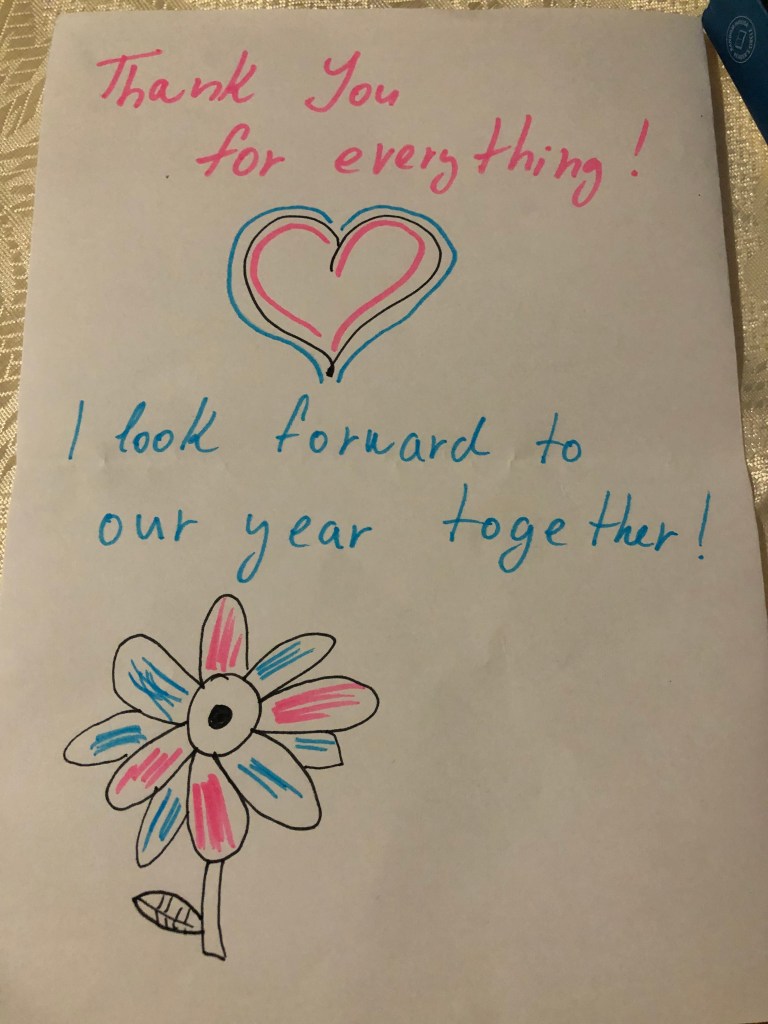 Thank You
for everything!
I look forward to
our year together!